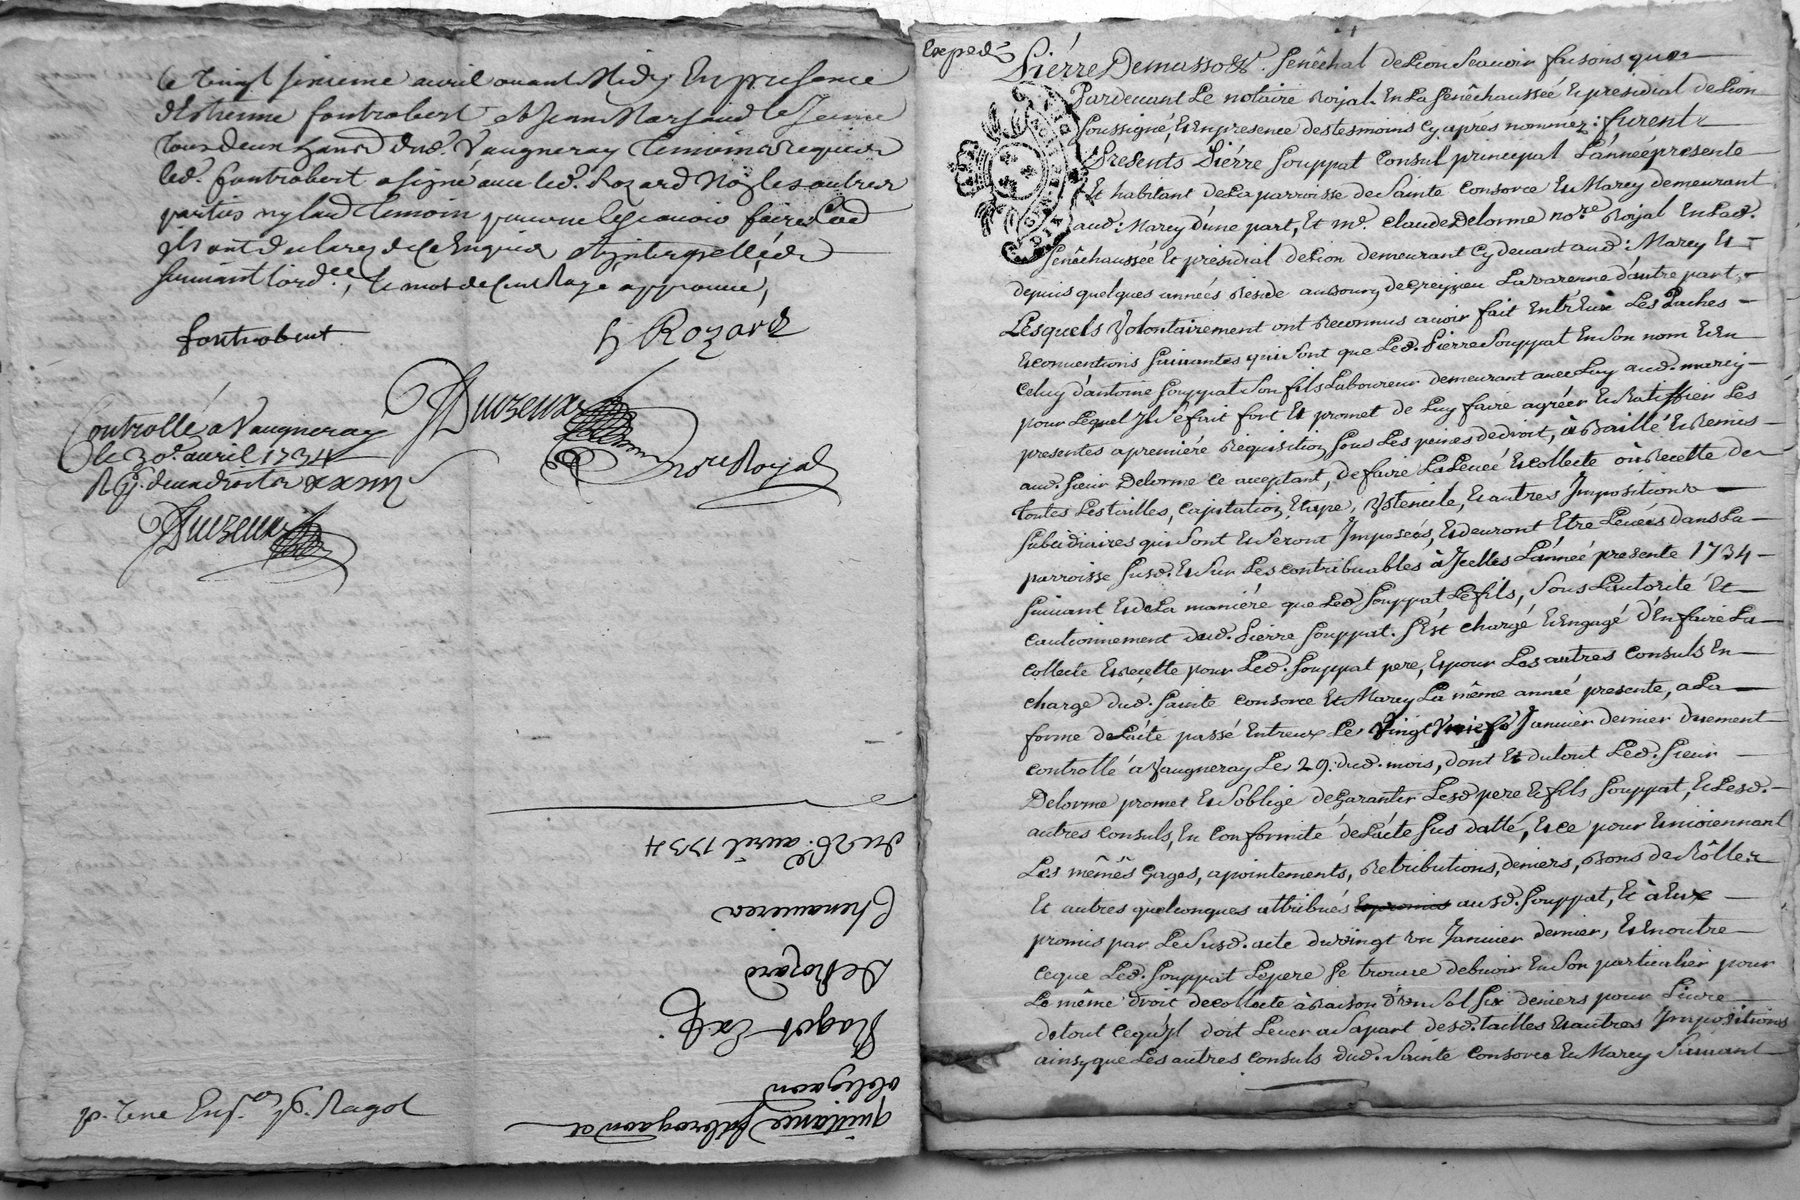 Le Vingt sixieme avril avant Midy En presence
d'Estienne fontrobert et Jean Marjaud le Jeune
tous deux dud. Vaugneray temoins requis
led. fontrobert a signé avec led. Rozard Non les autres
parties ny led temoin pour ne le scavoir faire
ils ont declarez de ce Enquis et interpellées
suivant lord.ce, le mot de rayé approuvé,
fontrobert
h Rozard
Duzeux
no.re Royal
Controllé a Vaugneray
le 30.e avril 1734
Duzeux
du 26.e avril 1734
Chenavierea
De Rozard
Ragot
quittance subrogaon et
obligaon
p. Ragot
Exped.
Piérre Demassoss. Senêchal de Lion Scavoir faisons que
Pardevant Le notaire Roijal En La Senêchaussée Et presidial de Lion
Soussigné, Et En presence des tesmoins Cy aprés nommez: furent
Presents Piérre Souppat Consul principal L'année presente
Et habitant de La parroisse de Sainte Consorce Et Marcy demeurant
aud: Marcy d'une part, Et m.e Claude Delorme no.re Roijal En Lad.
Senêchaussée Et presidial de Lion demeurant Cy devant aud: Marcy Et
depuis quelques années Reside au Bourg de Greijzieu Lavarenne d'autre part,
Lesquels Volontairement ont Reconnus avoir fait Entr'Eux Les Paches
Et conventions suivantes qui sont que Led. Pierre Souppat En Son nom Et En
Celuy d'antoine Souppat Son fils Laboureur demeurant avec Luy aud. marcy
pour Lequel Jl Se fait fort Et promet de Luy faire agréer Et Ratiffier Les
presentes a premiére Requisition, sous Les peines de droit, à Baillé Et Remis
aud. Sieur Delorme Ce aceptant, de faire La Leveé Et collecte ou Recette de
toutes Les tailles, Capitation, Etape, Vstencile, Et autres Jmpositions
Subcidiaires qui sont Et Seront Jmposeés, Et devront Etre Leveés dans La
parroisse Susd. Et Sur Les contribuables à Jcelles L'anneé presente 1734
Suivant Et de La maniére que Led. Souppat Le fils, Sous L'autorité Et
Cautionnement dud. Pierre Souppat. S'Est chargé Et Engagé d'En faire La
Collecte Et Recette pour Led. Souppat pere, Et pour Les autres Consuls En
charge dud. Sainte Consorce Et Marcy La même anneé presente, a La
forme de L'acte passé Entreux Le Vingt Janvier dernier duement
Controllé a Vaugneray Le 29. dud. mois, dont Et du tout Led. Sieur
Delorme promet Et S'oblige de Garantir Lesd pere Et fils Souppat, Et Lesd.
autres Consuls, En Conformité de L'acte Sus datté, Et ce pour Et moiennant
Les mêmes Gages, apointements, Retributions, deniers, Bons de Rôlles
Et autres quelconques attribués aud. Souppat, Et à Eux
promis par Le Susd. acte du vingt un Janvier dernier, Et En outre
Ce que Led. Souppat Le pere Se trouve debvoir En Son particulier pour
Le même droit de collecte à Raison d'un Sol Six deniers pour Livre
de tout Ce qu'jl doit Lever a Sa part desd. tailles Et autres Jmpositions
ainsy que Les autres Consuls dud. Sainte Consorce Et Marcy Suivant